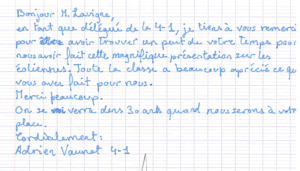 Bonjour M. Lavigne,
en tant que délégué de la 4-1, je tiens à vous remerci
pour avoir trouver un peut de votre temps pour
nous avoir fait cette magnifique présentation sur les
éoliennes. Toute la classe a beaucoup aprécié ce qu
vous avez fait pour nous.
Merci beaucoup.
On se verra dans 30 ans quand nous serons à votr
place.
Cordialement:
Adrien Vaunot 4-1